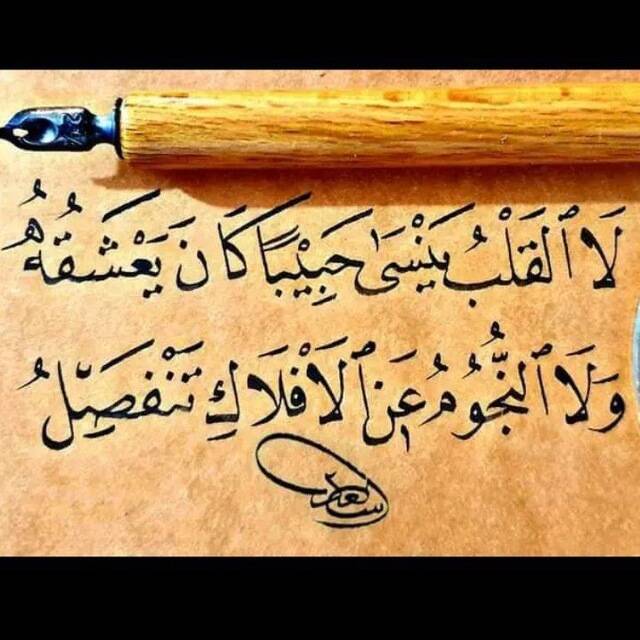 لَا ٱلقَلْبُ يَنْسَىٰ حَبِيْبًا كَانَ يَعْشَقُهُ
وَلَا ٱلنُّجُوُمُ عَنِ ٱلَافْلَاكِ تَنْفَصِلُ